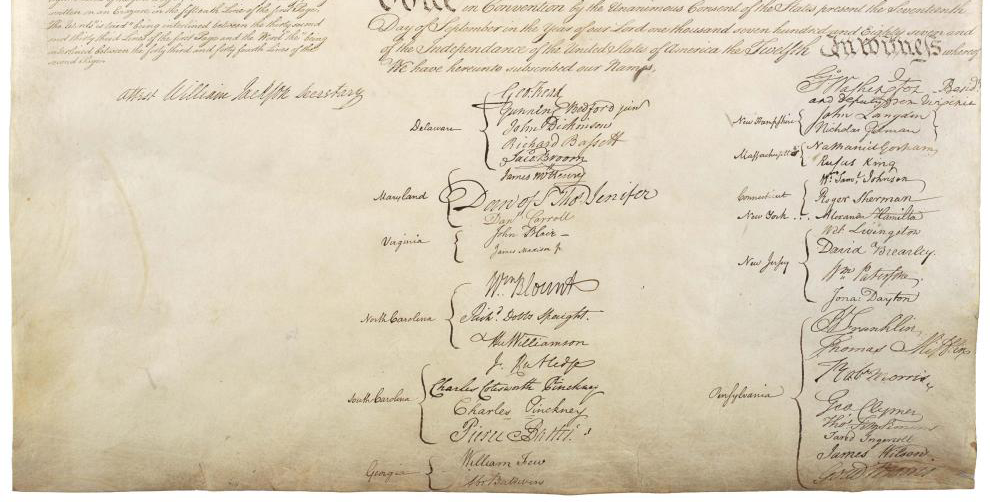 written on an Erazure in the fifteenth Line of the first Page,
The Word "is tried" being interlined between the thirty second
and thirty third Lines of the first Page and the Word "the" being
interlined between the forty third and forty fourth Lines of the
second Page.
done in Convention by the Unanimous Consent of the States present the Seventeenth
Day of September in the Year of our Lord one thousand seven hundred and Eighty seven and
of the Independance of the United States of America the Twelfth In Witness whereof
We have hereunto subscribed our Names,
attest William Jackson Secretary
Delaware
Geo: Read
Gunning Bedford jun
John Dickinson
Richard Bassett
Jaco: Broom
Maryland
James McHenry
Dan of St Thos Jenifer
Danl Carroll
Virginia
John Blair—
James Madison Jr
North Carolina
Wm Blount
Richd Dobbs Spaight.
Hu Williamson
South Carolina
J. Rutledge
Charles Cotesworth Pinckney
Charles Pinckney
Pierce Butler.
Georgia
William Few
Abr Baldwin
Go Washington Presidt
and deputy from Virginia
New Hampshire
John Langdon
Nicholas Gilman
Massachusetts
Nathaniel Gorham
Rufus King
Connecticut
Wm Saml Johnson
Roger Sherman
New York . . . Alexander Hamilton
New Jersey
Wil: Livingston
David Brearley.
Wm Paterson.
Jona: Dayton
Pensylvania
B Franklin
Thomas Mifflin
Robt Morris
Geo. Clymer
Thos FitzSimons
Jared Ingersoll
James Wilson.
Gouv Morris